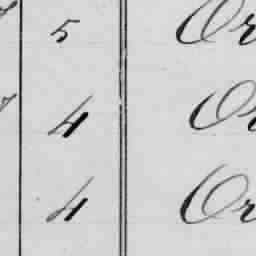 5 Or
4 Or
4 Or